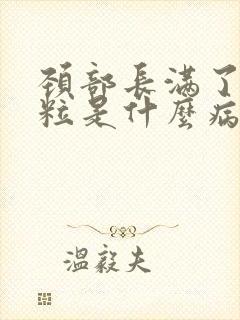 頸部長滿了
粒是什麼病
溫毅夫